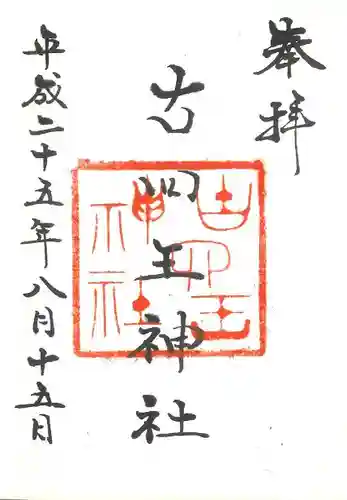 奉拝
古四王神社
平成二十五年八月十五日
古四王
神社